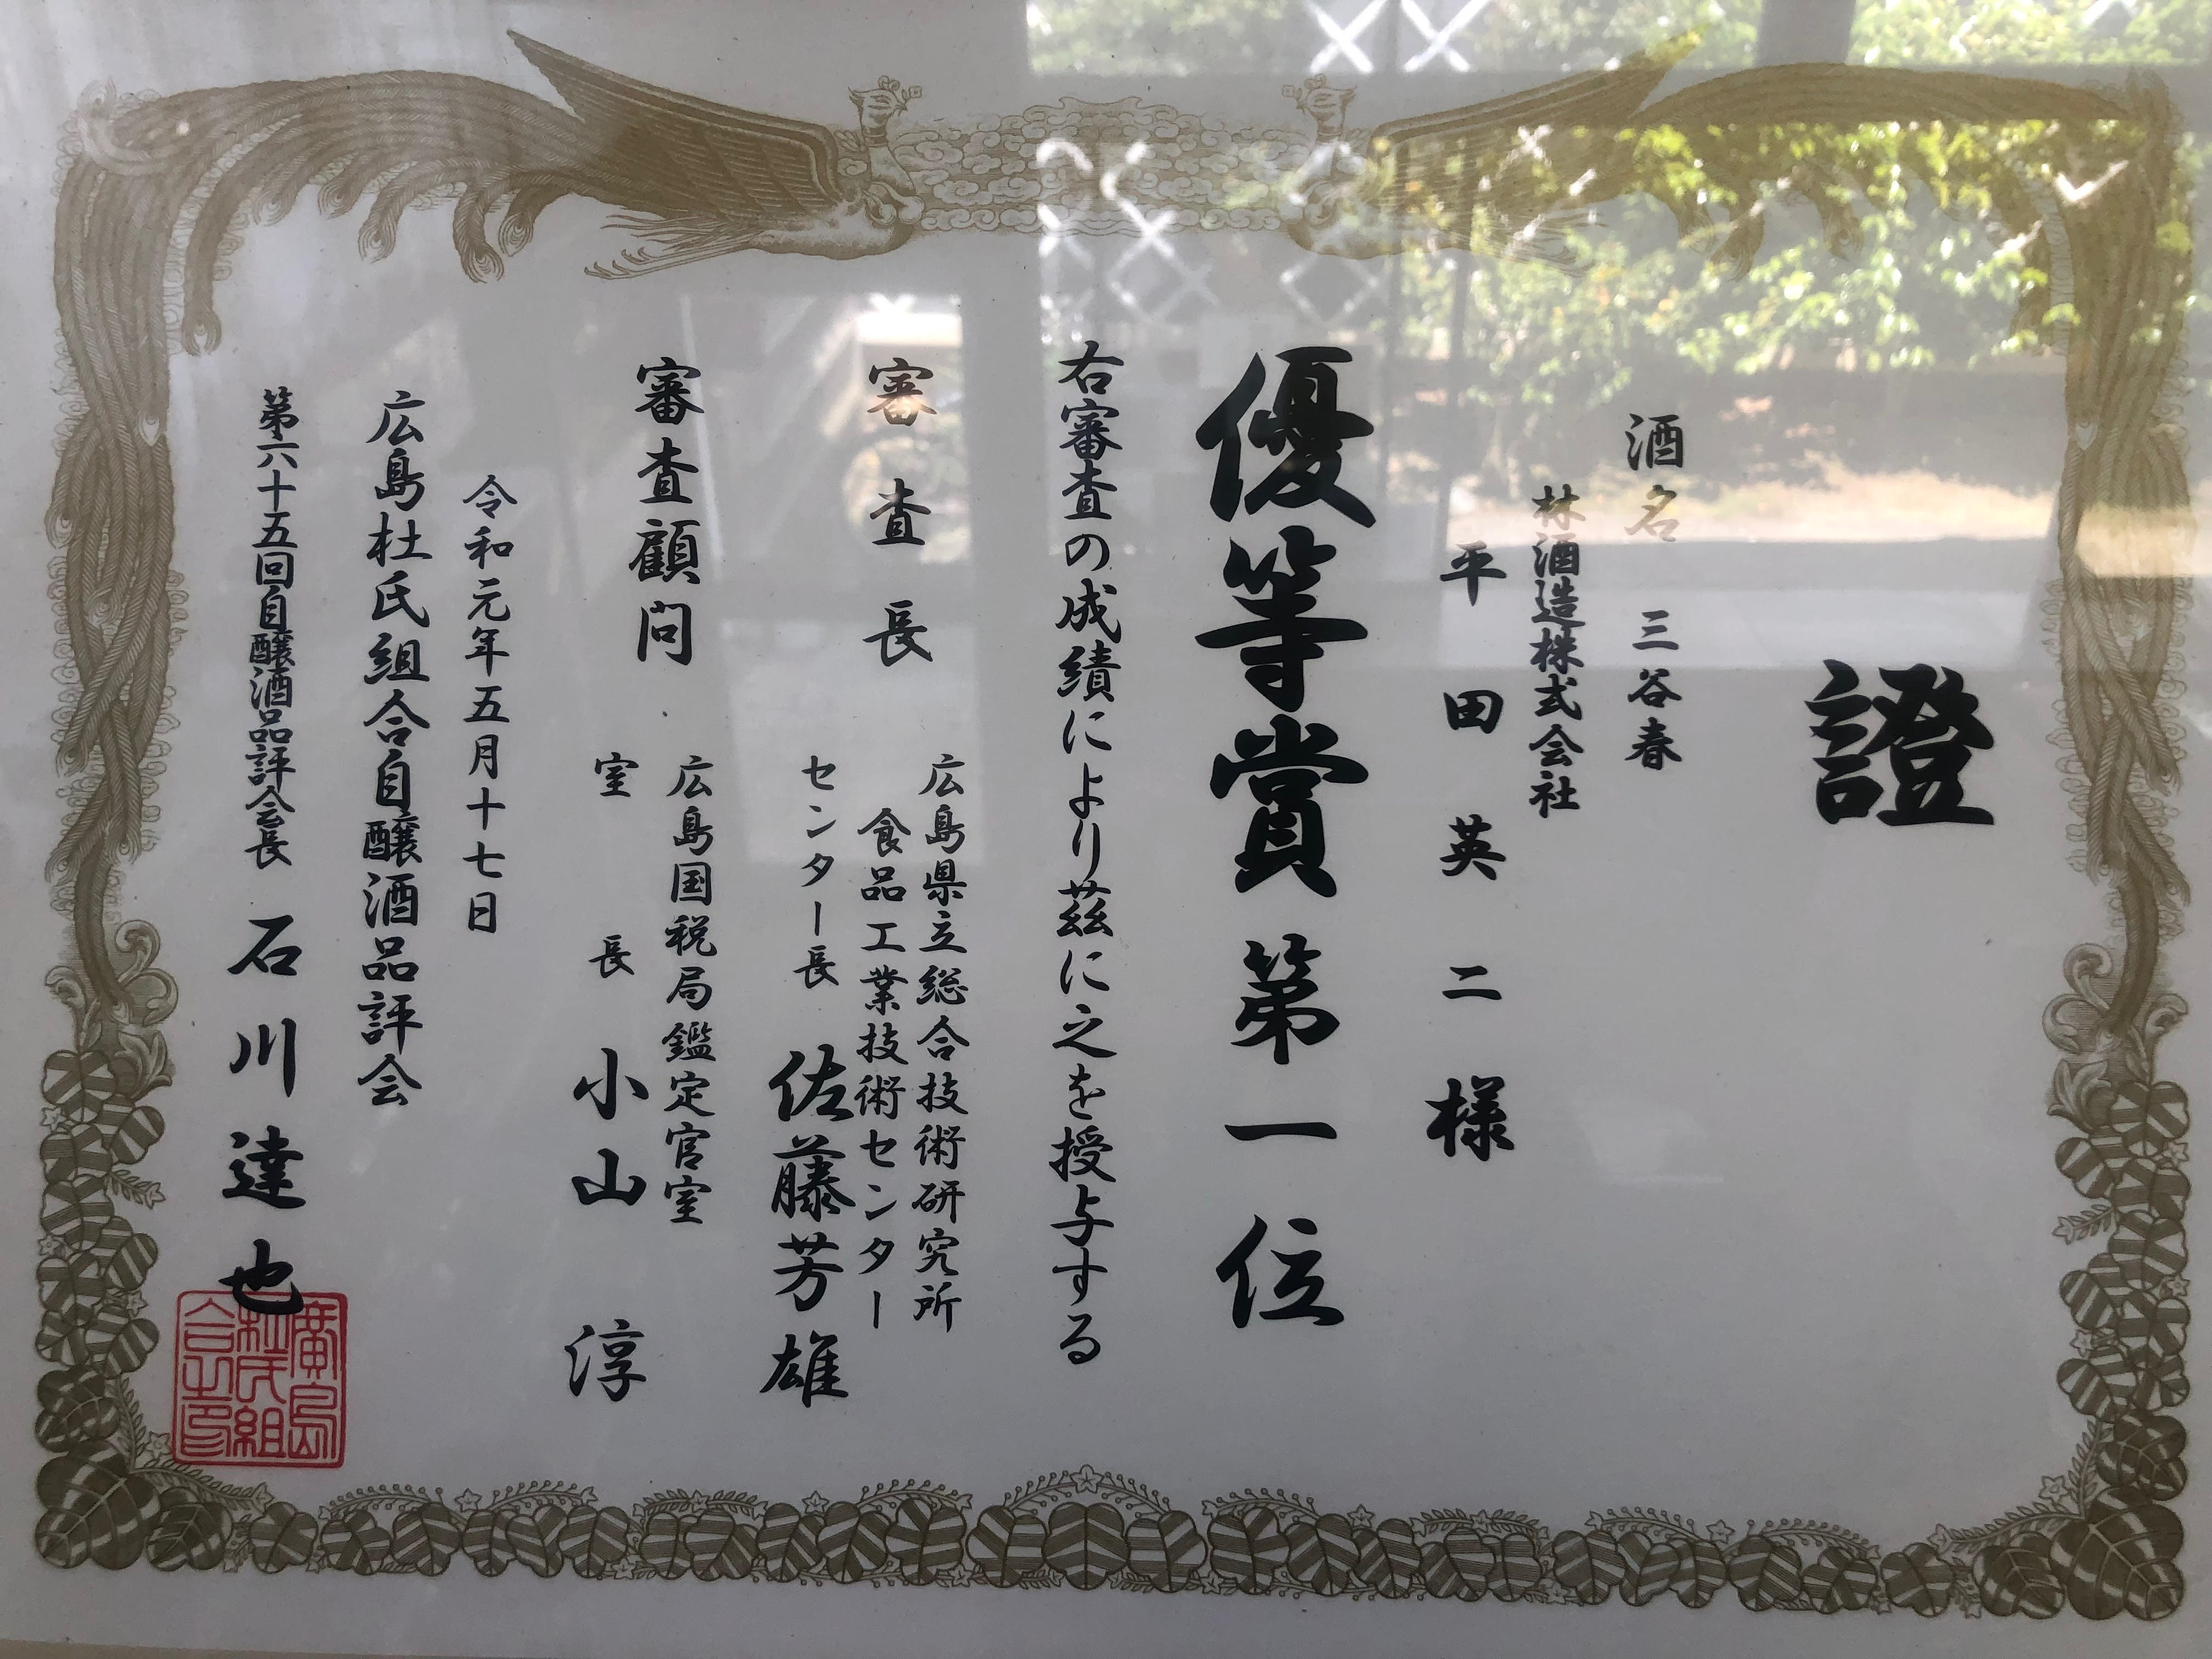 證
酒名　三谷春
林酒造株式会社
平田英二様
優等賞第一位
右審査の成績により茲に之を授与する
審査長
広島県立総合技術研究所
食品工業技術センター
センター長　佐藤芳雄
審査顧問
広島国税局鑑定官室
室長　小山淳
令和元年五月十七日
広島杜氏組合自醸酒品評会
第六十五回自醸酒品評会長　石川達也
廣島
杜氏組
合之印